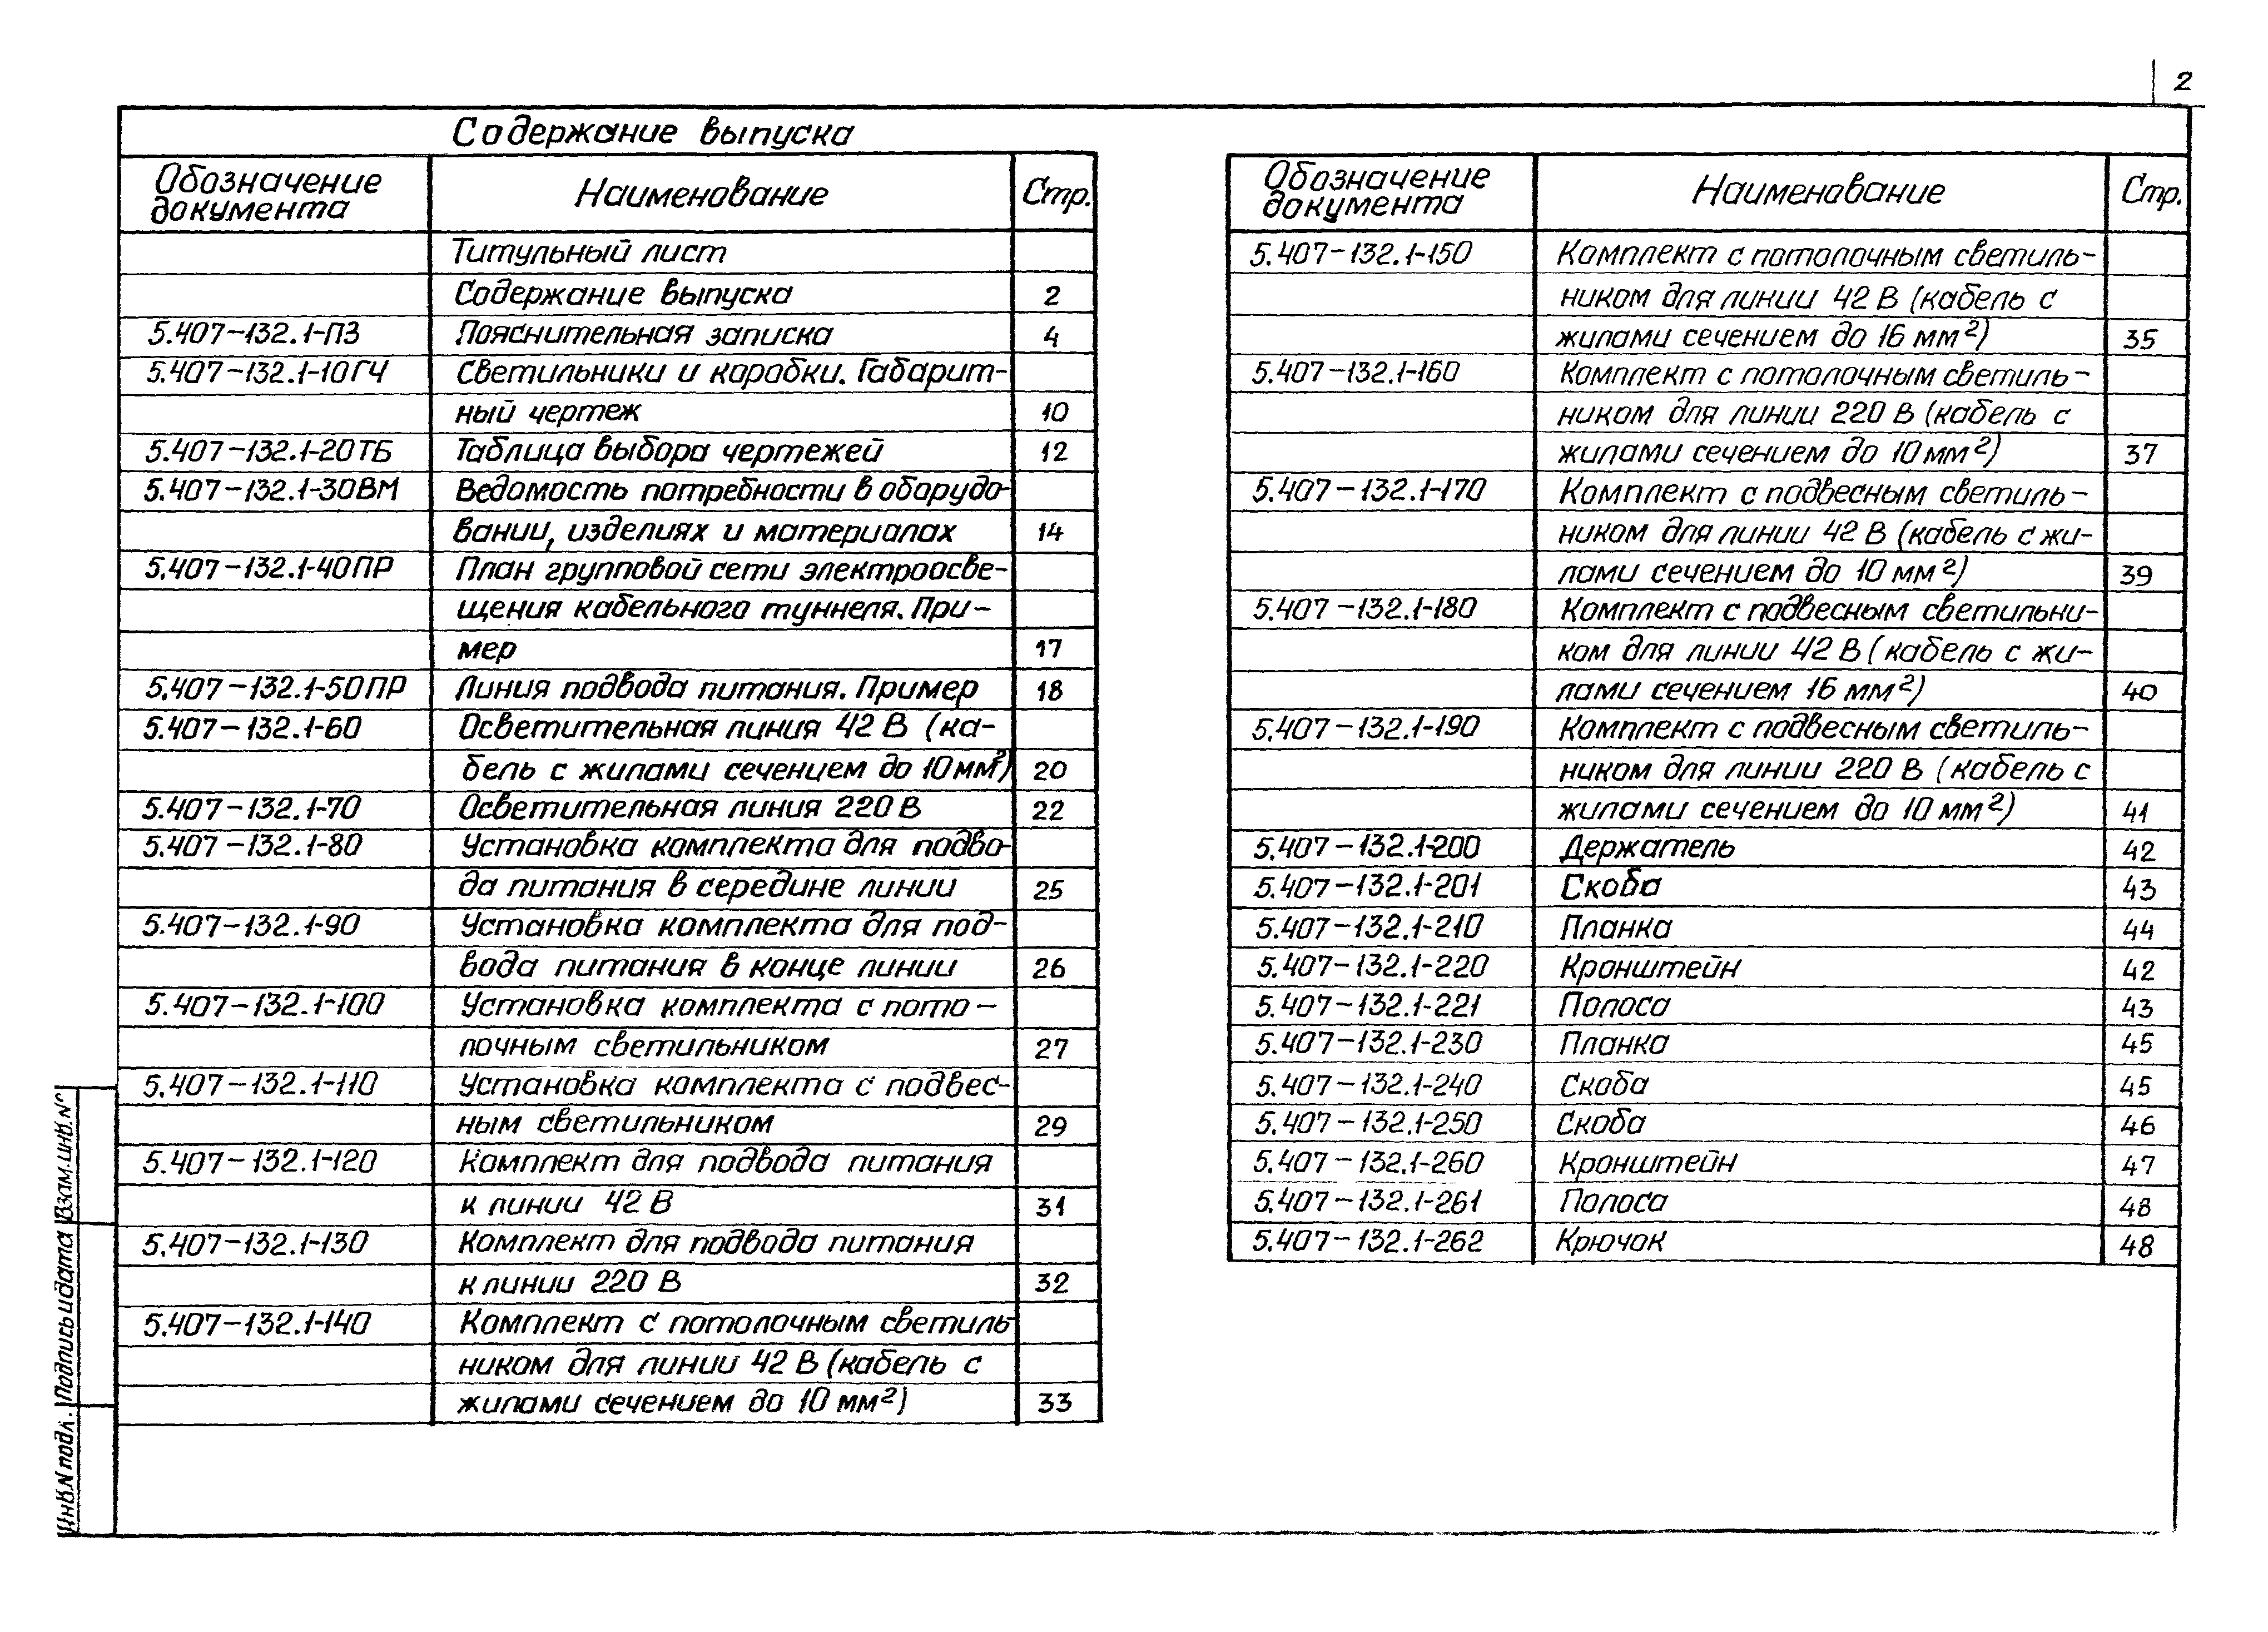 2
Содержание выпуска
Обозначение документа Наименование Стр.
Титульный лист
Содержание выпуска 2
5.407-132.1-ПЗ Пояснительная записка 4
5.407-132.1-10ГЧ Светильники и коробки. Габарит-
ный чертеж 10
5.407-132.1-20ТБ Таблица выбора чертежей 12
5.407-132.1-30ВМ Ведомость потребности в оборудо-
вании, изделиях и материалах 14
5.407-132.1-40ПР План групповой сети электроосве-
щения кабельного туннеля. При-
мер 17
5.407-132.1-50ПР Линия подвода питания. Пример 18
5.407-132.1-60 Осветительная линия 42 В (ка-
бель с жилами сечением до 10 мм²) 20
5.407-132.1-70 Осветительная линия 220 В 22
5.407-132.1-80 Установка комплекта для подво-
да питания в середине линии 25
5.407-132.1-90 Установка комплекта для под-
вода питания в конце линии 26
5.407-132.1-100 Установка комплекта с пото-
лочным светильником 27
5.407-132.1-110 Установка комплекта с подвес-
ным светильником 29
5.407-132.1-120 Комплект для подвода питания
к линии 42 В 31
5.407-132.1-130 Комплект для подвода питания
к линии 220 В 32
5.407-132.1-140 Комплект с потолочным светиль-
ником для линии 42 В (кабель с
жилами сечением до 10 мм²) 33
Обозначение документа Наименование Стр.
5.407-132.1-150 Комплект с потолочным светиль-
ником для линии 42 В (кабель с
жилами сечением до 16 мм²) 35
5.407-132.1-160 Комплект с потолочным светиль-
ником для линии 220 В (кабель с
жилами сечением до 10 мм²) 37
5.407-132.1-170 Комплект с подвесным светиль-
ником для линии 42 В (кабель с жи-
лами сечением до 10 мм²) 39
5.407-132.1-180 Комплект с подвесным светильни-
ком для линии 42 В (кабель с жи-
лами сечением 16 мм²) 40
5.407-132.1-190 Комплект с подвесным светиль-
ником для линии 220 В (кабель с
жилами сечением до 10 мм²) 41
5.407-132.1-200 Держатель 42
5.407-132.1-201 Скоба 43
5.407-132.1-210 Планка 44
5.407-132.1-220 Кронштейн 42
5.407-132.1-221 Полоса 43
5.407-132.1-230 Планка 45
5.407-132.1-240 Скоба 45
5.407-132.1-250 Скоба 46
5.407-132.1-260 Кронштейн 47
5.407-132.1-261 Полоса 48
5.407-132.1-262 Крючок 48
Инв.N подл. Подпись и дата Взам.инв.N°